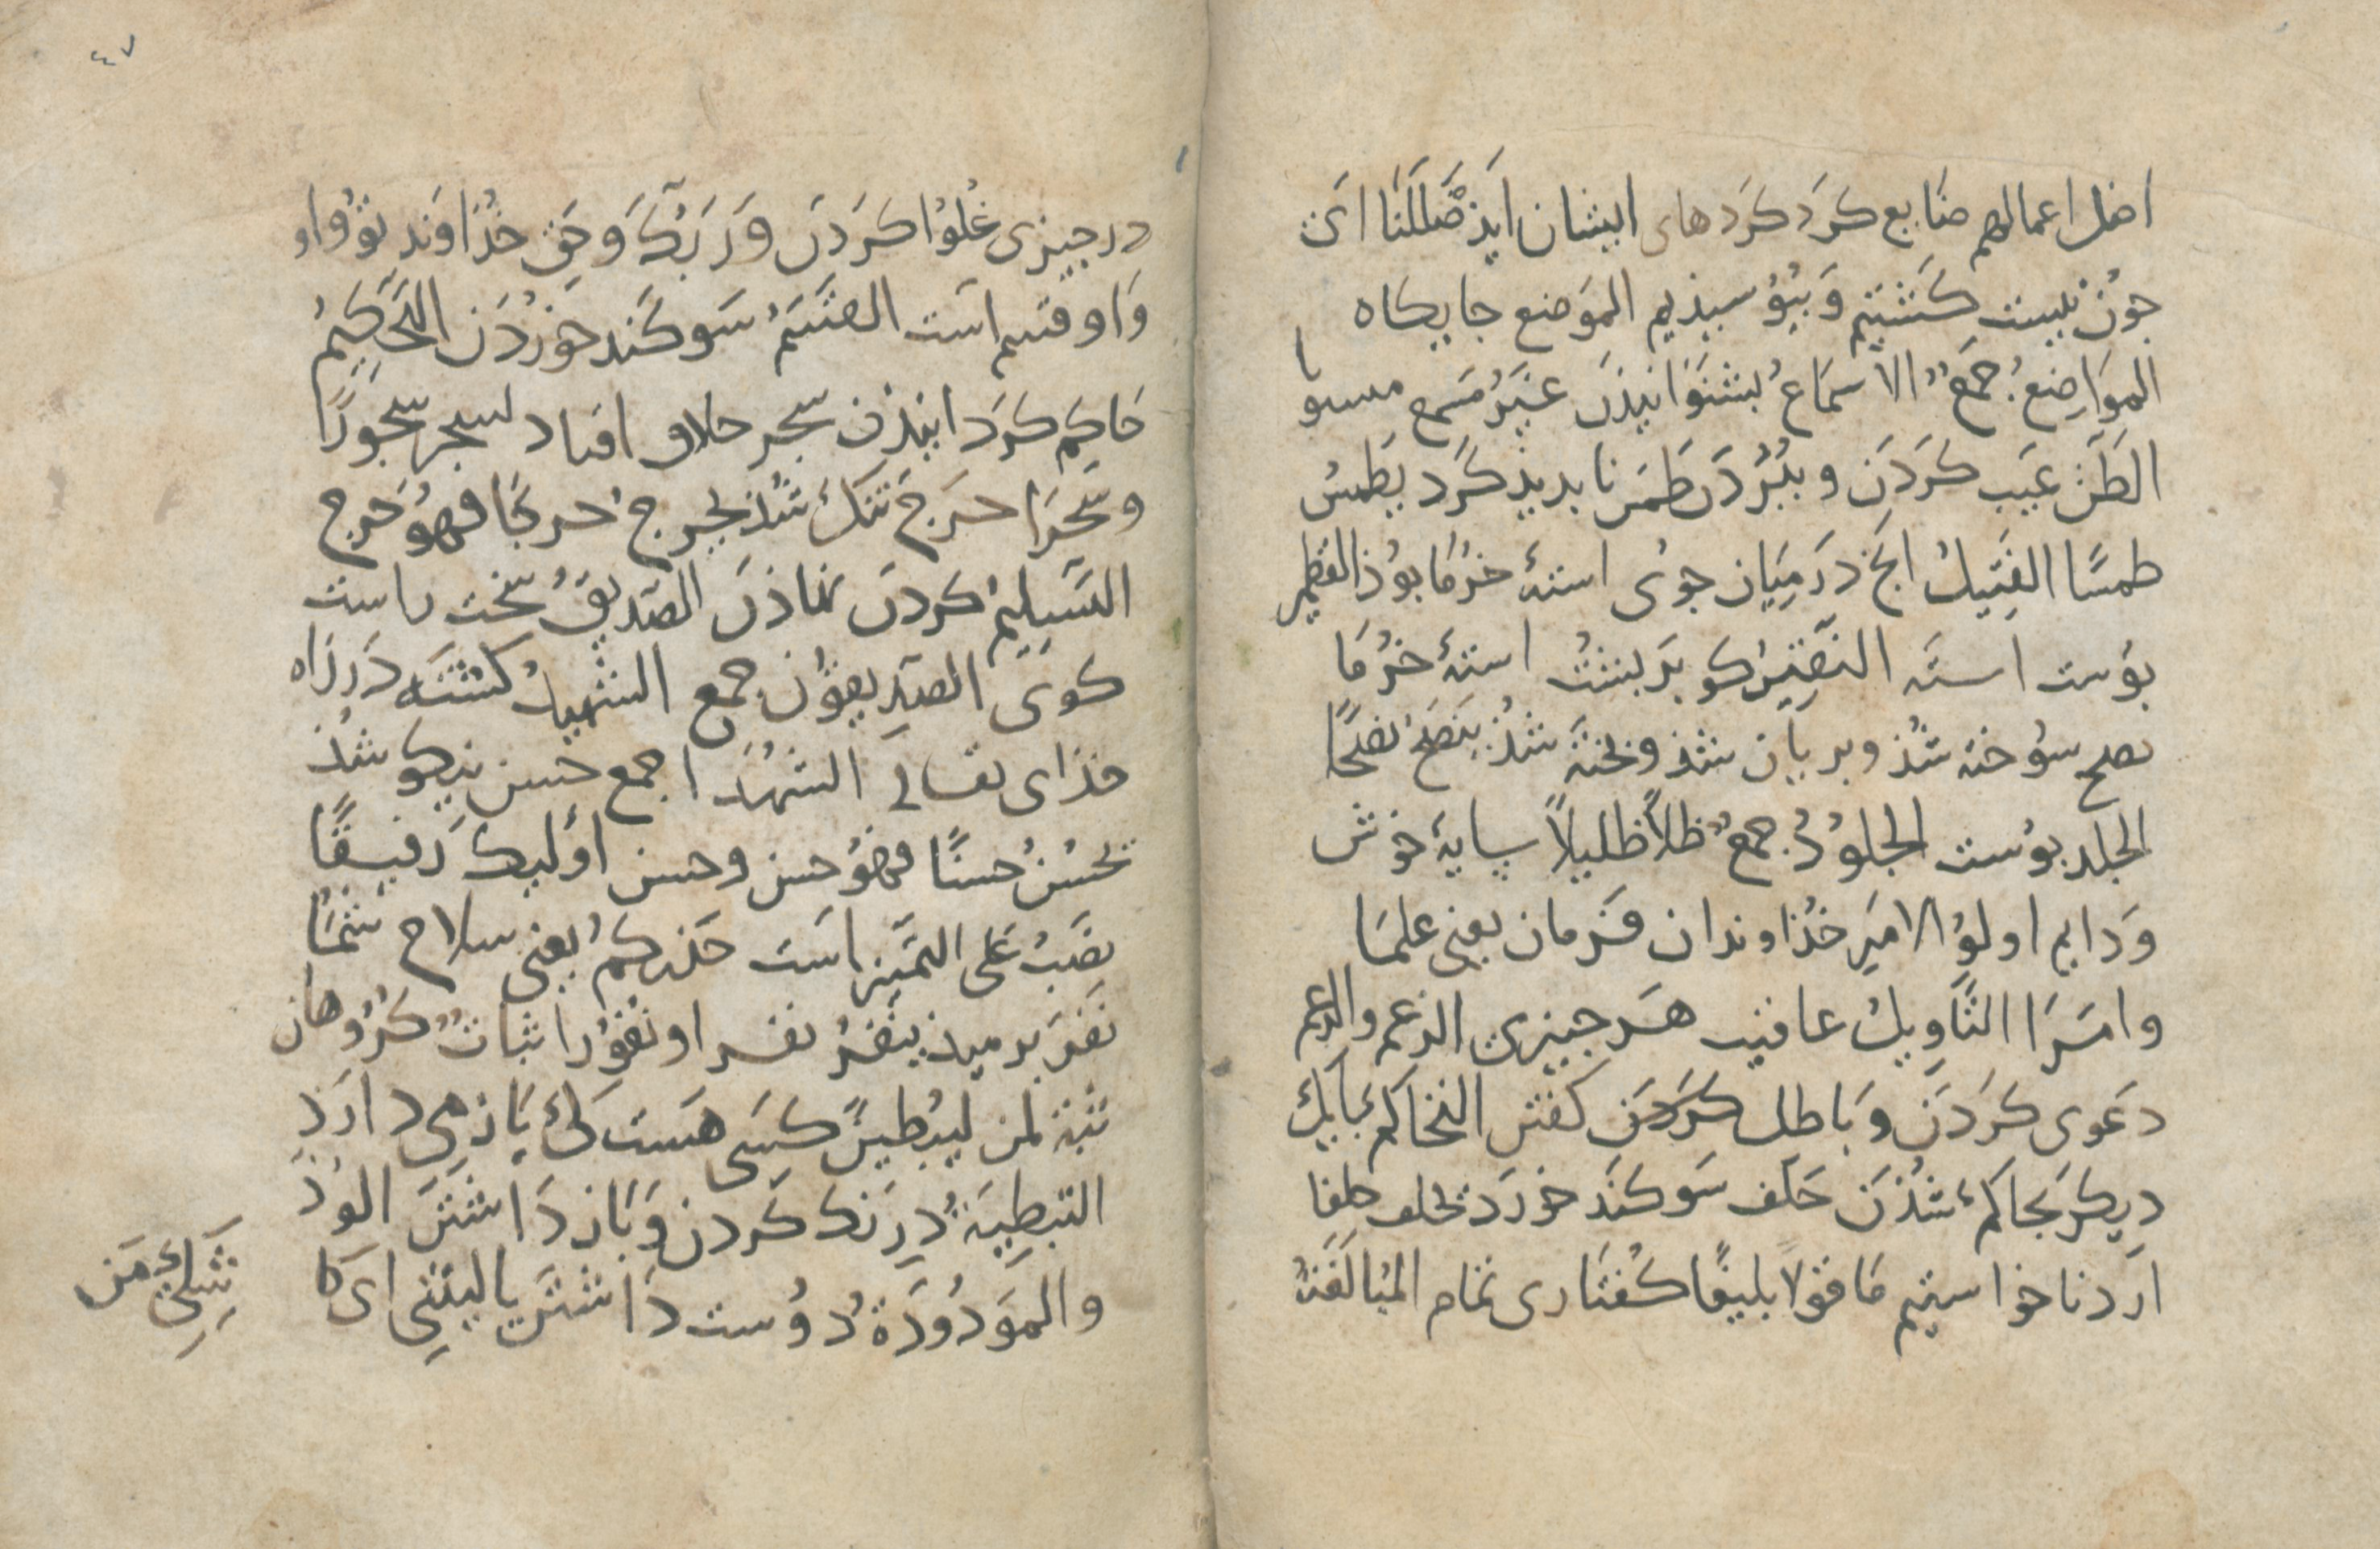 اضل اعمالهم ضایع کَردَ کَردَهای ایشان ایذ ضَّلَلنَا ای
جون نیست کَشتیم وَ بیُوُسیذیم الموَضع جایکاه
الموَاضِعُ جَمعٌ الاسمَاعُ بشنوَانیذَن غیَرُ مَسمع مسوا
الطَعَن عیَب کَردَن و بیُرُدَن طَمسَ نابدیذ کَرد یَطمسُ
طمسًا الفَتیلُ انج دَر میَان جوُی استۀ خرُمَا بوُذ القطمیر
بوُست استَه النَقیرُ کو بَر بشتُ استۀ خرُمَا
نضج سوُخته شُذ و بریان شُذ و بخته شُذ ینضَجُ نضجًا
الجلد بوُست الجلوُدُ جمعٌ ظلاً ظلیلاً سایۀ خوش
وَدایم اولوُ الامرِ خذُاوندان فَرمان یعنی علمَا
وامَرَا التَّاوِیلُ عاقبت هَر جیزی الزعم والزعم
دعَوی کَردَن وَ باطل کَردَن کفتن التحاکمُ بایک
دِیکَر بَحاکمُ شُذَن حَلَف سَوکَند خورَد یحلف حلفا
ارَدنا خواستیم مَا قوَلا بلیغًا کُفتَاری تمَام المبُالَغَهُ
٤٧
در جیزی غُلوُا کَردَن وَرَبِّکَ وَ حَقِ خذُاوَند توُ واو
وَاو قسم اَست القسَمُ سَوکَند خورُدَن التَّحکِیمُ
حَاکِم کرَدانیذَن سَجَر خلاف افتاد یسجر سجوُرًا
وسَجَرَا حَرِجَ تنَکَ شذُ یحَرج حرجًا فهوُ حَرج
التَسلِیمُ کردَن نماذَن الصّدِیقُ سَخت راست
کوی الصّدِیقوُن جمع الشهیدُ کُشتَه دَر رَاه
خذای تعالی الشهُدَا جمع حسن نیکو شُذ
یَحسُنُ حسنًا فهوُ حسن وحسن اولیکَ رَفیقًا
نصَبُ عَلی التمَیز اَست حَذرکمُ یعنی سلاح شُمَا
نَفَرَ برمیذ ینَفرُ نفرا و نفوُرا ثبات کرُوُهان
ثبُة لمن لیبُطیَنَّ کسَی هَست کی باز می دارَد
التبطِیَةُ دِرنک کَردن وَ بَاز دَاشتن الوُدُّ
والموَدوُدَةُ دوُست داشتَن یالیتَنِی ای کا
شکِی من